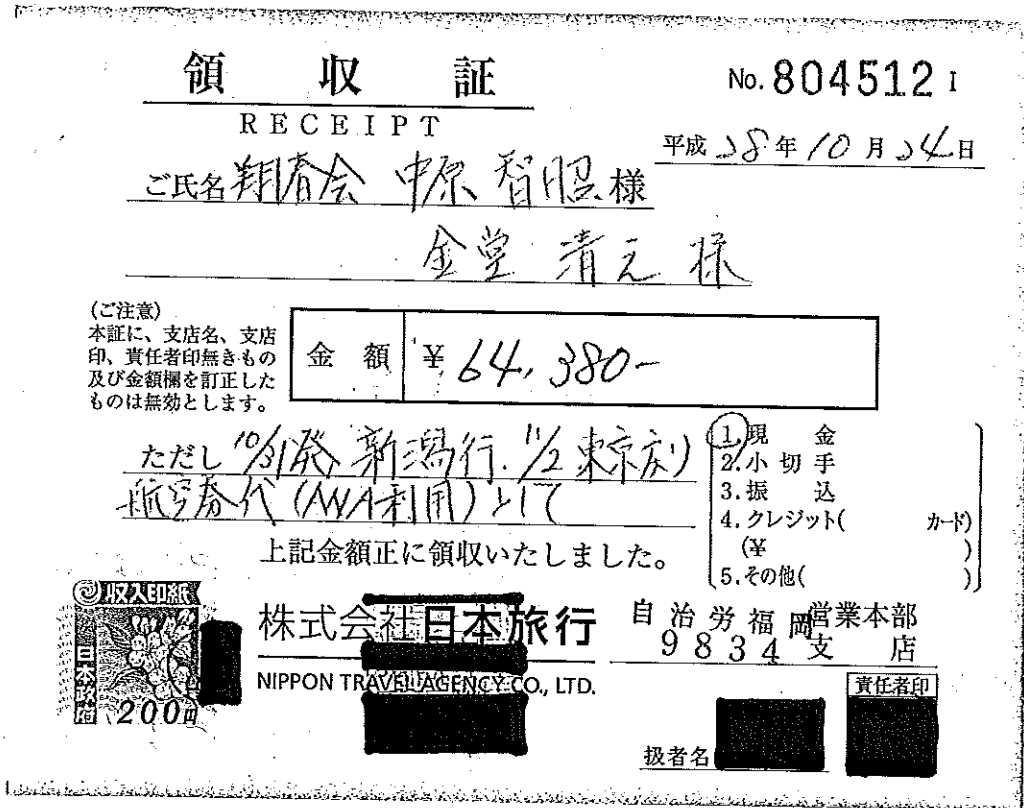 領収証
No. 804512 I
RECEIPT
平成28年10月24日
ご氏名 翔春会 中原 智昭 様
金堂 清元 様
(ご注意)
本証に、支店名、支店
印、責任者印無きもの
及び金額欄を訂正した
ものは無効とします。
金額 ¥64,380-
ただし 10/31発 新潟行. 11/2 東京戻り
航空券代(ANA利用)として
上記金額正に領収いたしました。
1. 現金
2. 小切手
3. 振込
4. クレジット( カード)
(¥ )
5. その他( )
収入印紙
日本政府
200円
株式会社日本旅行
NIPPON TRAVEL AGENCY CO., LTD.
自治労福岡 営業本部
9834 支店
責任者印
扱者名